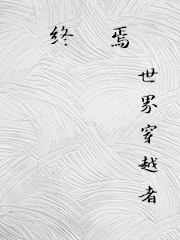 终焉
世界穿越者